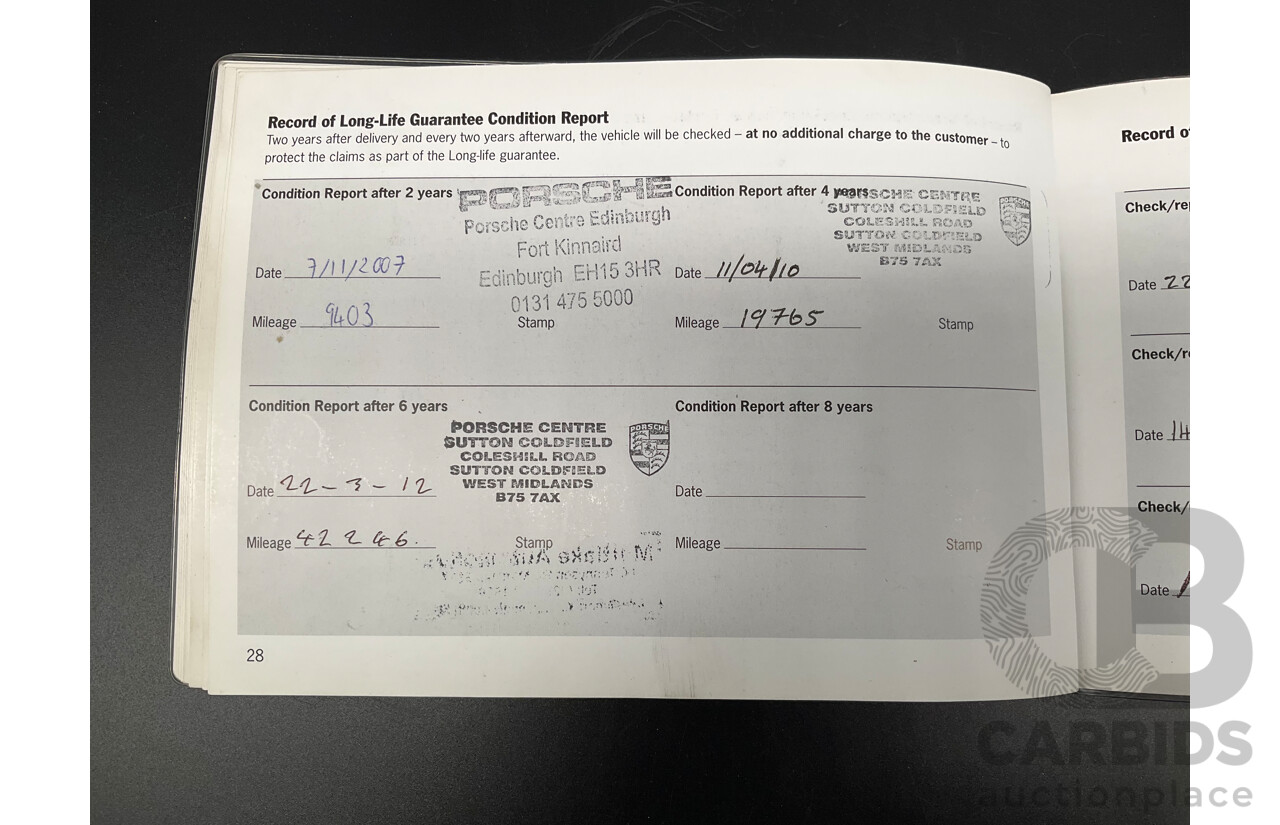 Record of Long-Life Guarantee Condition Report
Two years after delivery and every two years afterward, the vehicle will be checked – at no additional charge to the customer – to
protect the claims as part of the Long-life guarantee.
Condition Report after 2 years
PORSCHE
Porsche Centre Edinburgh
Fort Kinnaird
Edinburgh EH15 3HR
0131 475 5000
Date 7/11/2007
Mileage 9403
Stamp
Condition Report after 4 years
PORSCHE CENTRE
SUTTON COLDFIELD
COLESHILL ROAD
SUTTON COLDFIELD
WEST MIDLANDS
B75 7AX
PORSCHE
Date 11/04/10
Mileage 19765
Stamp
Condition Report after 6 years
PORSCHE CENTRE
SUTTON COLDFIELD
COLESHILL ROAD
SUTTON COLDFIELD
WEST MIDLANDS
B75 7AX
PORSCHE
Date 22-3-12
Mileage 42246.
Stamp
Condition Report after 8 years
Date
Mileage
Stamp
28
Record o
Check/re
Date 22
Check/r
Date 14
Check/
Date
CB
CARBIDS
auctionplace